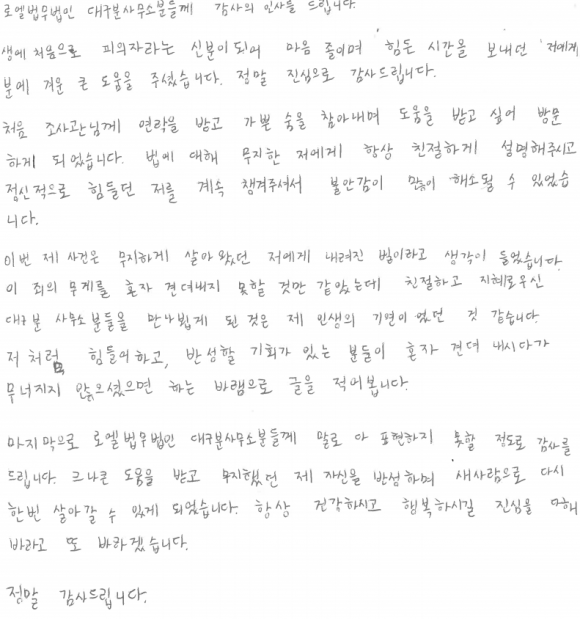 로엘법무법인 대구분사무소분들께 감사의 인사를 드립니다.
생에 처음으로 피의자라는 신분이 되어 마음 졸이며 힘든 시간을 보내던 저에게
분에 겨운 큰 도움을 주셨습니다. 정말 진심으로 감사드립니다.
처음 조사관님께 연락을 받고 가쁜 숨을 참아내며 도움을 받고 싶어 방문
하게 되었습니다. 법에 대해 무지한 저에게 항상 친절하게 설명해주시고
정신적으로 힘들던 저를 계속 챙겨주셔서 불안감이 많이 해소될 수 있었습
니다.
이번 제 사건은 무지하게 살아왔던 저에게 내려진 벌이라고 생각이 들었습니다.
이 죄의 무게를 혼자 견뎌내지 못할 것만 같았는데 친절하고 지혜로우신
대구분 사무소분들을 만나뵙게 된 것은 제 인생의 기연이었던 것 같습니다.
저 처럼 힘들어하고, 반성할 기회가 있는 분들이 혼자 견뎌 내시다가
무너지지 않으셨으면 하는 바램으로 글을 적어봅니다.
마지막으로 로엘법무법인 대구분사무소분들께 말로 다 표현하지 못할 정도로 감사를
드립니다. 크나큰 도움을 받고 무지했던 제 자신을 반성하며 새사람으로 다시
한번 살아갈 수 있게 되었습니다. 항상 건강하시고 행복하시길 진심을 다해
바라고 또 바라겠습니다.
정말 감사드립니다.